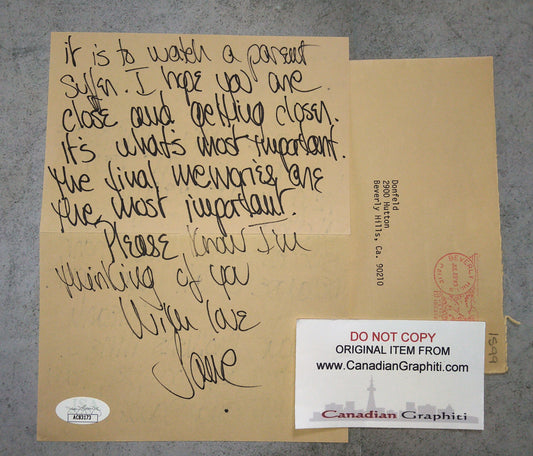 it is to watch a parent
suffer. I hope you are
close and getting closer.
it's what's most important.
the final memories are
the most important.
Please know I'm
thinking of you
With love
Donfeld
2900 Hutton
Beverly Hills, Ca. 90210
BEVERLY HI
1599
DO NOT COPY
ORIGINAL ITEM FROM
www.CanadianGraphiti.com
Canadian Graphiti
JSA